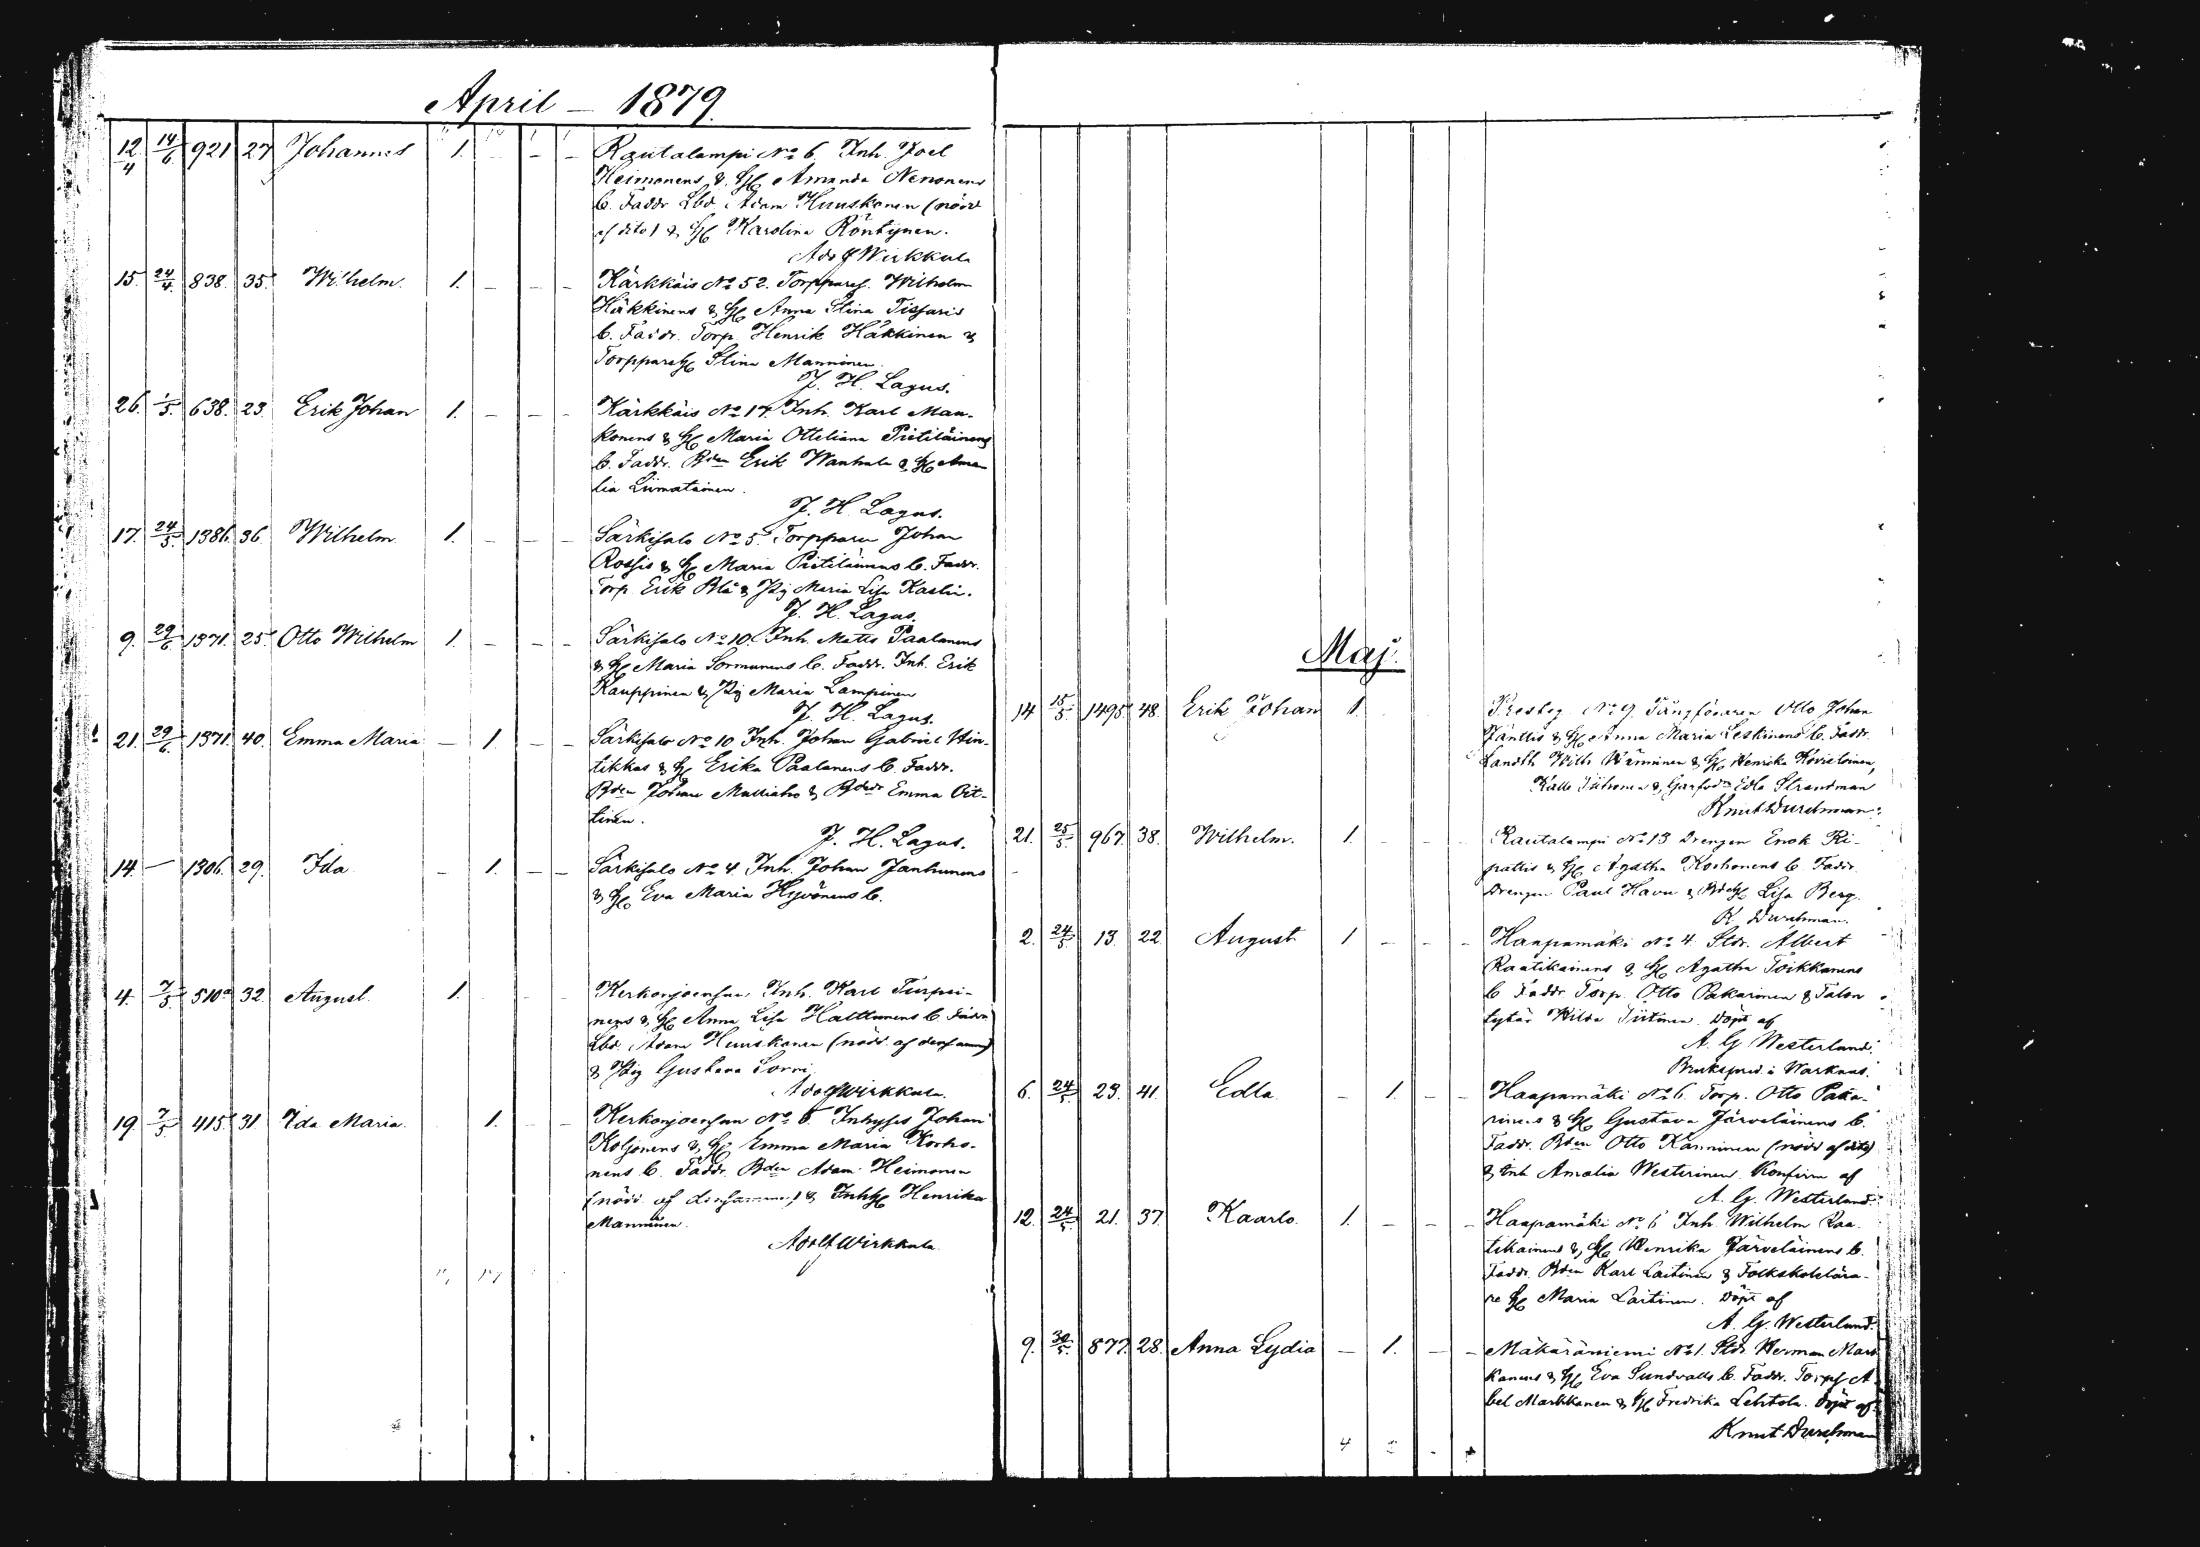 April – 1879.
12/4 14/6 921 27 Johannes 1. – – – Rautalampi No 6. Inh. Joel
Heimonens & H. Amanda Nenonens
b. Faddr Lbd. Adam Huuskonen (nödd
af dito) & H. Karolina Röntynen.
Adolf Wirkkula
15. 24/4. 838. 35. Wilhelm. 1. – – – Kärkkäis No 52. Torppares. Wilhelm
Häkkinens & H. Anna Stina Tissaris
b. Faddr. Torp. Henrik Häkkinen &
Torppare H. Stina Manninen.
J. H. Lagus.
26. 1/5. 638. 23. Erik Johan 1. – – – Kärkkäis No 17. Inh. Karl Man-
konens & H. Maria Otteliana Pietiläinens
b. Faddr. Bden Erik Wanhala & H. Ama
lia Liimatainen.
J. H. Lagus.
17. 24/5. 1386. 36. Wilhelm. 1. – – – Särkisalo No 5. Torppare Johan
Rossis & H. Maria Pietiläinens b. Faddr.
Torp. Erik Blå & Pig Maria Lisa Kaslin.
J. H. Lagus.
9. 29/6 1371. 25. Otto Wilhelm 1. – – – Särkisalo No 10. Inh. Matts Paalanens
& H. Maria Sormunens b. Faddr. Inh. Erik
Kauppinen & Pig Maria Lampinen
J. H. Lagus.
21. 29/6 1371. 40. Emma Maria – 1. – – Särkisalo No 10 Inh. Johan Gabriel Hin-
tikkas & H. Erika Paalanens b. Faddr.
Bden Johan Mulliaho & Bdedr Emma Oit-
tinen.
J. H. Lagus.
14. – 1306. 29. Ida – 1. – – Särkisalo No 4. Inh. Johan Janhunens
& H. Eva Maria Hyvönens b.
4. 7/5 510a 32. August. 1. Kerkonjoensuu Inh. Karl Turpei-
nens & H. Anna Lisa Halttunens b. Faddr
Lbd. Adam Huuskonen (nödd. af densamme)
& Pig Gustava Sorri
Adolf Wirkkula.
19. 7/5 415 31. Ida Maria. 1. Kerkonjoensuu No 6. Inhyses Johan
Koljonens & H. Emma Maria Korho-
nens b. Faddr. Bden Adam Heimonen
(nödd af densamme) & Inh H. Henrika
Manninen.
Adolf Wirkkula.
Maj.
14 15/5. 1495 48. Erik Johan 1. Prestg. No 9. Fångföraren Otto Johan
Jänttis & H. Anna Maria Leskinens b. Faddr.
Landth. Wilh. Wänninen & H. Henrika
Kalle & Edla Strandman
Knut Durchman.
21. 25/5. 967. 38. Wilhelm. 1. – – – Rautalampi No 13 Drengen Enok Ri-
pattis & H. Agatha Korhonens b. Faddr.
Drengen Paul Havu & H. Lisa Berg.
K. Durchman.
2. 24/5. 13. 22. August 1 – – – Haapamäki No 4. Sldr. Albert
Raatikainens & H. Agatha Toikkanens
b. Faddr Torp. Otto Pakarinen & Talon
tytär Hilda Tiitinen. Döpt af
A. G. Westerlund.
Brukspred. i Warkaus.
6. 24/5. 23. 41. Edla. – 1. – – Haapamäki No 6. Torp. Otto Paka-
rinens & H. Gustava Järveläinens b.
Faddr. Bden Otto Kanninen (nödd af dito)
& Inh Amalia Westerinen. Konfirm af
A. G. Westerlund.
12. 24/5. 21. 37. Kaarlo. 1. – – – Haapamäki No 6 Inh. Wilhelm Raa-
tikainens & H. Henrika Järveläinens b.
Faddr. Bden Karl Laitinen & Folkskolelära-
re H. Maria Laitinen. Döpt af
A. G. Westerlund.
9. 30/5. 877. 28. Anna Lydia – 1. – – Mäkäräniemi No 1. Sldr Herman Mark
kanens & H. Eva Sundvalls b. Faddr. Torps A
bel Markkanen & H. Fredrika Lehtola. Döpt af
Knut Durchman
4